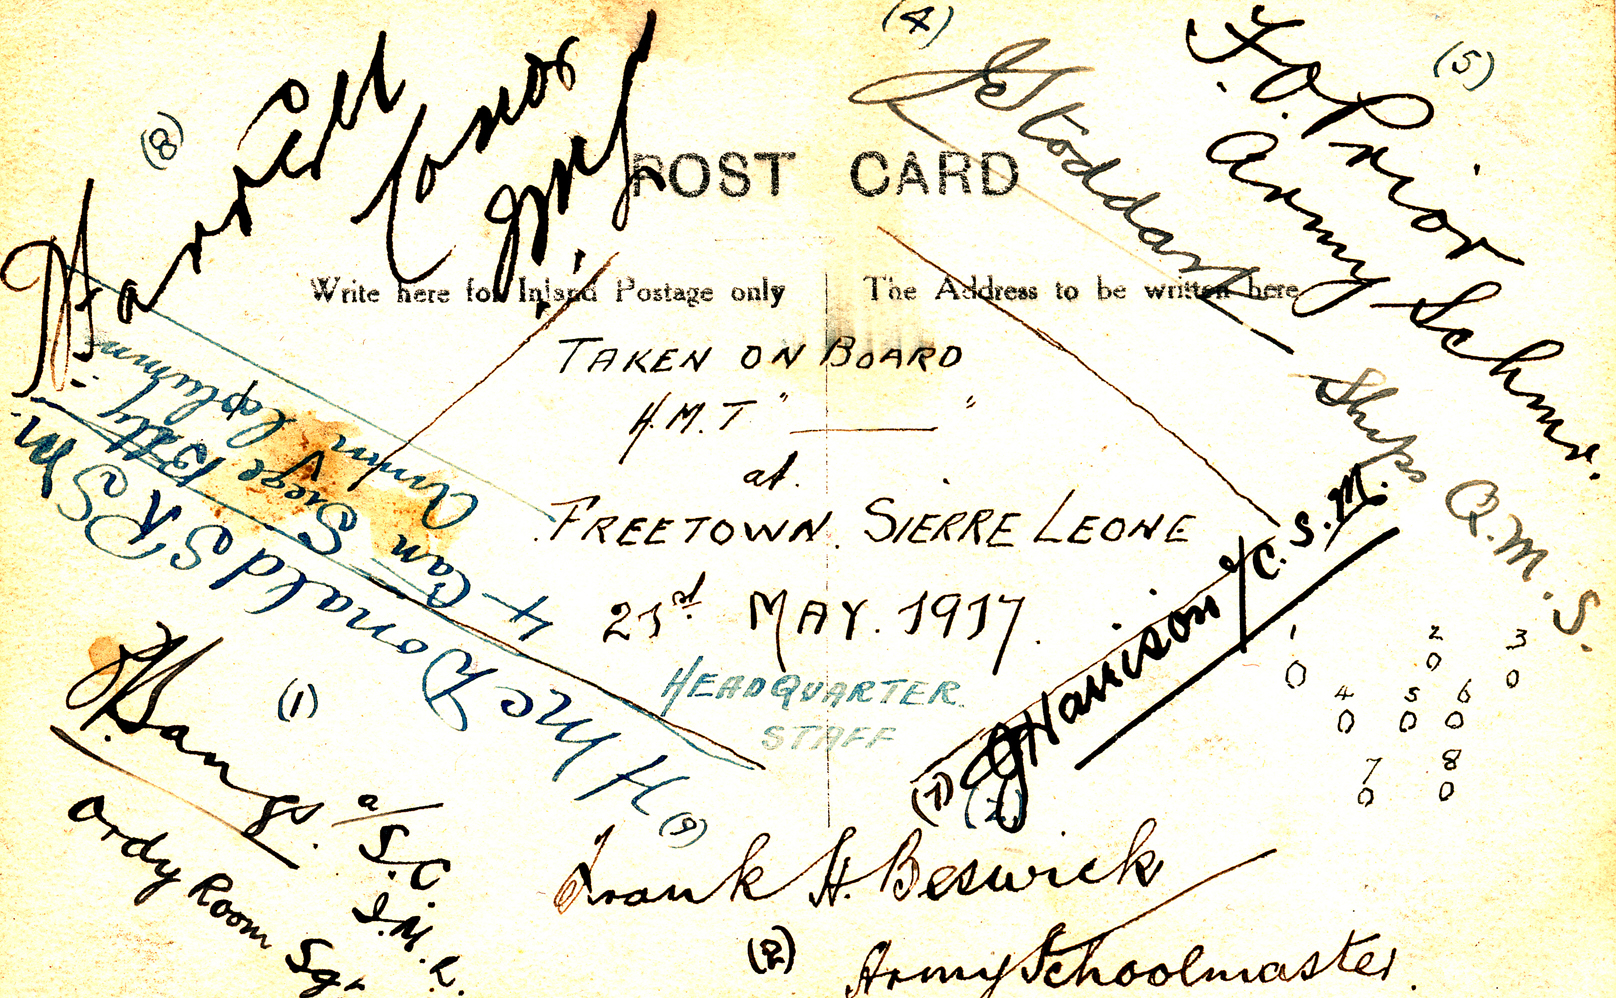 (8)
(4)
(5)
POST CARD
J E Stoddart
Ships Q.M.S.
F. O. Prior
Army Schmr.
Write here for Inland Postage only
The Address to be written here
TAKEN ON BOARD
H.M.T " "
at.
FREETOWN. SIERRE LEONE
21st MAY. 1917.
HEADQUARTER
STAFF
H McDonald S R S M
4 Can Siege Bty
Harrison a/C.S.M.
(7)
(2)
(1)
a/S.C.
Ordy Room Sgr
(3)
Frank H. Beswick
(2)
Army Schoolmaster.
1 2 3
0 0 0
4 5 6
0 0 0
7 8
0 0